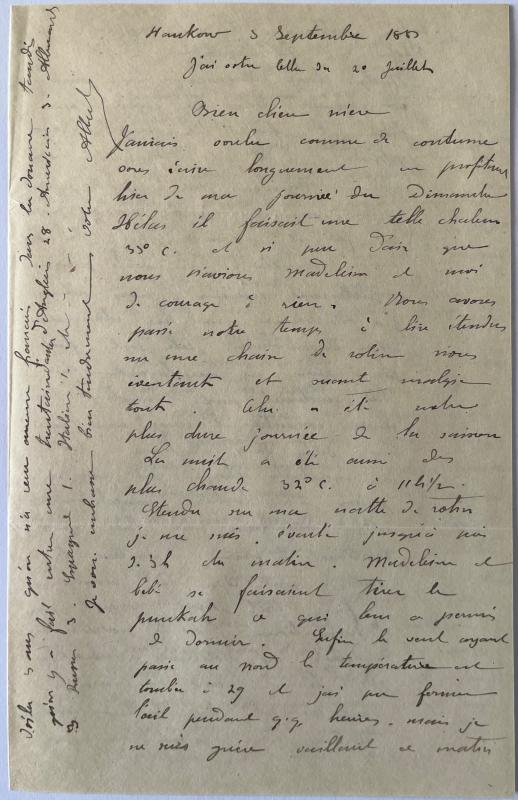 Hankow 3 Septembre 188
J'ai votre lettre du 20 Juillet
Bien chère mère
J'aurais voulu comme de coutume
vous écrire longuement en profitant
hier de ma journée du Dimanche
Hélas il faisait une telle chaleur
35° c. et si peu d'air que
nous n'avions Madeleine et moi
de courage à rien. Nous avons
passé notre temps à lire étendus
sur une chaise de rotin nous
éventant et suant malgré
tout. Cela a été notre
plus dure journée de la saison
La nuit a été aussi des
plus chaude 32° c. à 11h½.
Etendu sur ma natte de rotin
je me suis éventé jusqu'à
3h du matin. Madeleine et
bébé se faisaient tirer le
punkah ce qui leur a permis
de dormir. Enfin le vent ayant
passé au nord la température est
tombée à 29 et j'ai pu fermer
l'oeil pendant q.q. heures. mais je
ne suis guère vaillant ce matin
Voilà ans qu'on n'a reçu aucun français dans la douane tandis
qu'on y a fait entrer une trentaine d'Anglais 28. Américain 3. Allemands
3 Russes 3. Espagnol 1. Italien 1. etc
Je vous embrasse bien tendrement votre Albert